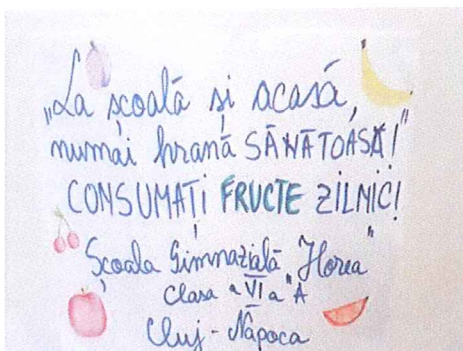 „La școală și acasă,
numai hrană SĂNĂTOASĂ!"
CONSUMAȚI FRUCTE ZILNIC!
Școala Gimnazială "Horea"
Clasa a VI a A
Cluj-Napoca